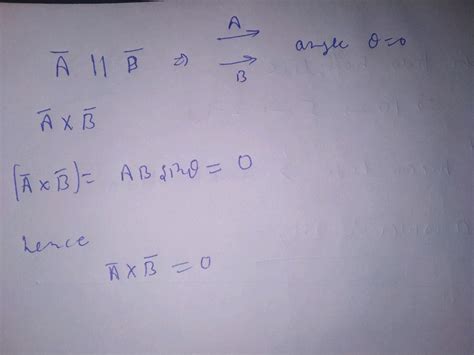 A̅ || B̅ ⇒ A B angle θ=0
A̅ × B̅
|A̅ × B̅| = AB sinθ = 0
hence
A̅ × B̅ = 0